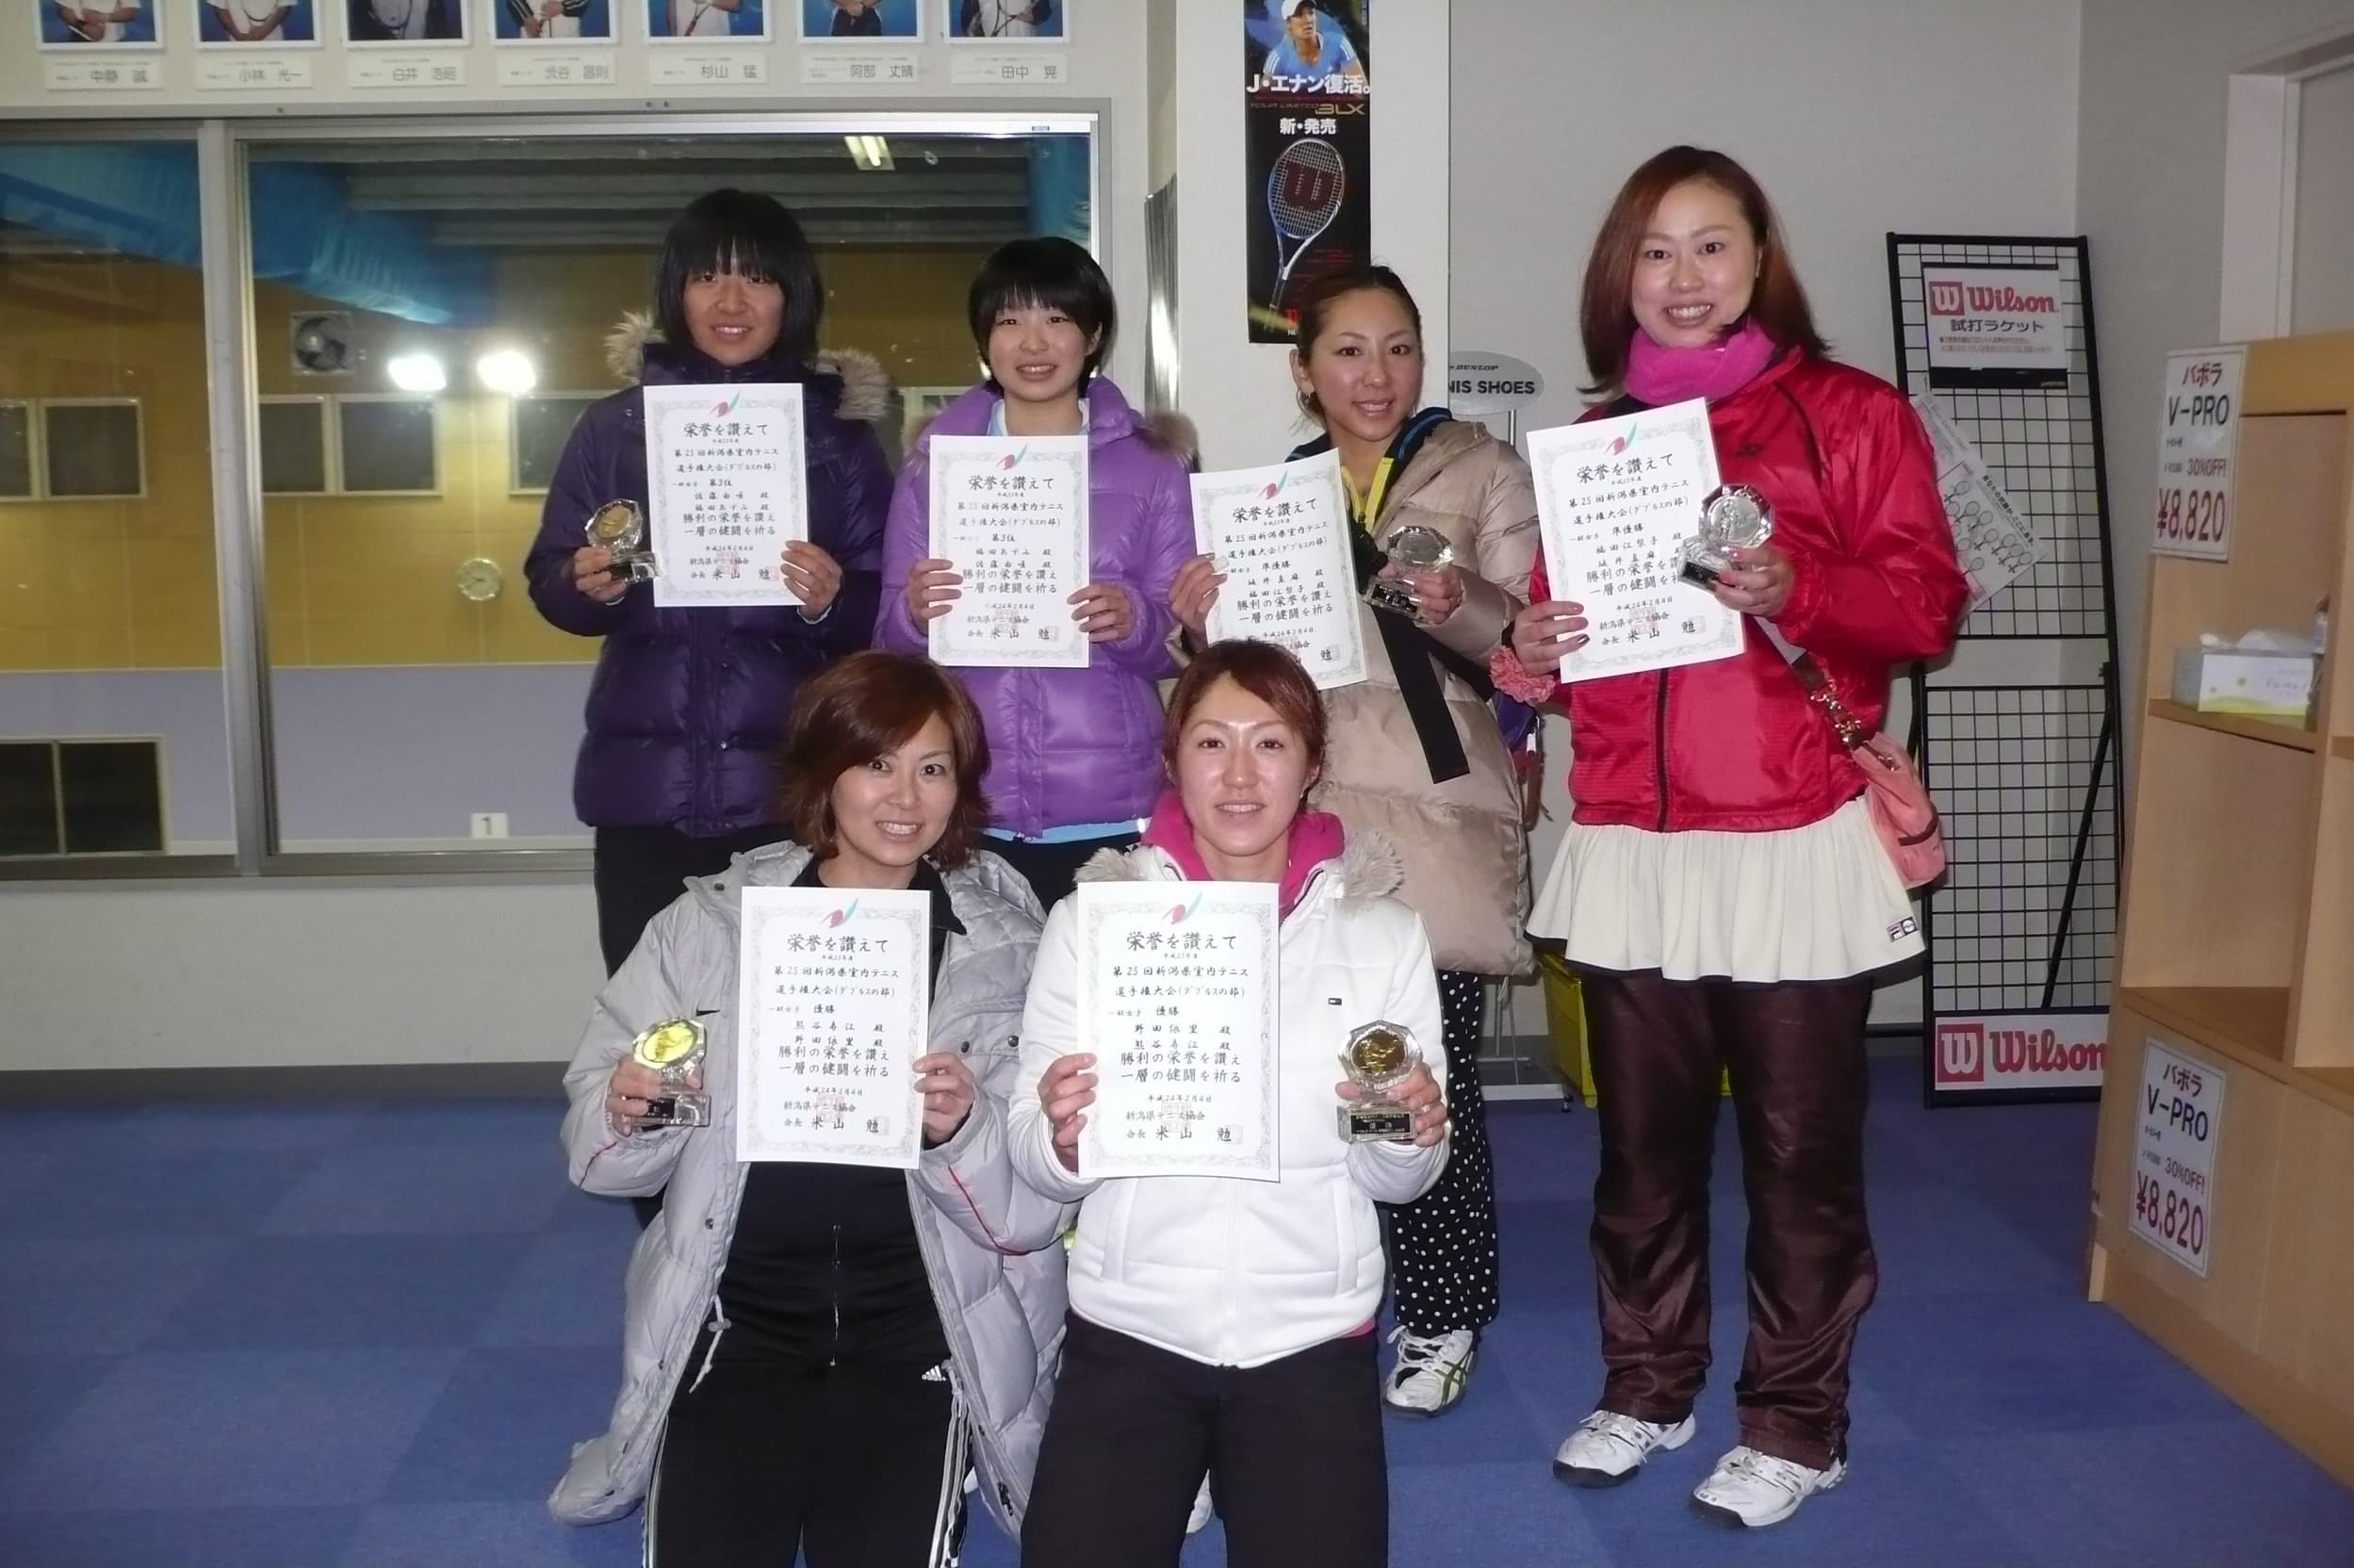 中静 誠
小林 光一
白井 浩昭
渋谷 昌則
杉山 猛
阿部 丈晴
田中 晃
J・エナン復活。
TOUR LIMITED BLX
新・発売
W
DUNLOP
NIS SHOES
W Wilson
試打ラケット
バボラ
V-PRO
30%OFF!
¥8,820
栄誉を讃えて
平成23年度
第25回新潟県室内テニス
選手権大会(ダブルスの部)
一般女子 第3位
佐藤由唯 殿
福田あずみ 殿
勝利の栄誉を讃え
一層の健闘を祈る
平成24年2月4日
新潟県テニス協会
会長 米山 勉
栄誉を讃えて
平成23年度
第25回新潟県室内テニス
選手権大会(ダブルスの部)
第3位
福田あずみ 殿
佐藤由唯 殿
勝利の栄誉を讃え
一層の健闘を祈る
平成24年2月4日
新潟県テニス協会
会長 米山 勉
栄誉を讃えて
平成23年度
第25回新潟県室内テニス
選手権大会(ダブルスの部)
一般女子 準優勝
殿
福田江梨子 殿
勝利の栄誉を讃え
一層の健闘を祈る
平成24年2月4日
勉
栄誉を讃えて
平成23年度
第25回新潟県室内テニス
選手権大会(ダブルスの部)
一般女子 準優勝
福田江梨子 殿
勝利の栄誉を讃
一層の健闘を祈
平成24年2月4日
新潟県テニス協会
会長 米山 勉
1
栄誉を讃えて
平成23年度
第25回新潟県室内テニス
選手権大会(ダブルスの部)
一般女子 優勝
熊谷寿江 殿
野田依里 殿
勝利の栄誉を讃え
一層の健闘を祈る
平成24年2月4日
新潟県テニス協会
会長 米山 勉
栄誉を讃えて
平成23年度
第25回新潟県室内テニス
選手権大会(ダブルスの部)
一般女子 優勝
野田依里 殿
熊谷寿江 殿
勝利の栄誉を讃え
一層の健闘を祈る
平成24年2月4日
新潟県テニス協会
会長 米山 勉
優勝
adidas
W Wilson
バボラ
V-PRO
30%OFF!
¥8,820